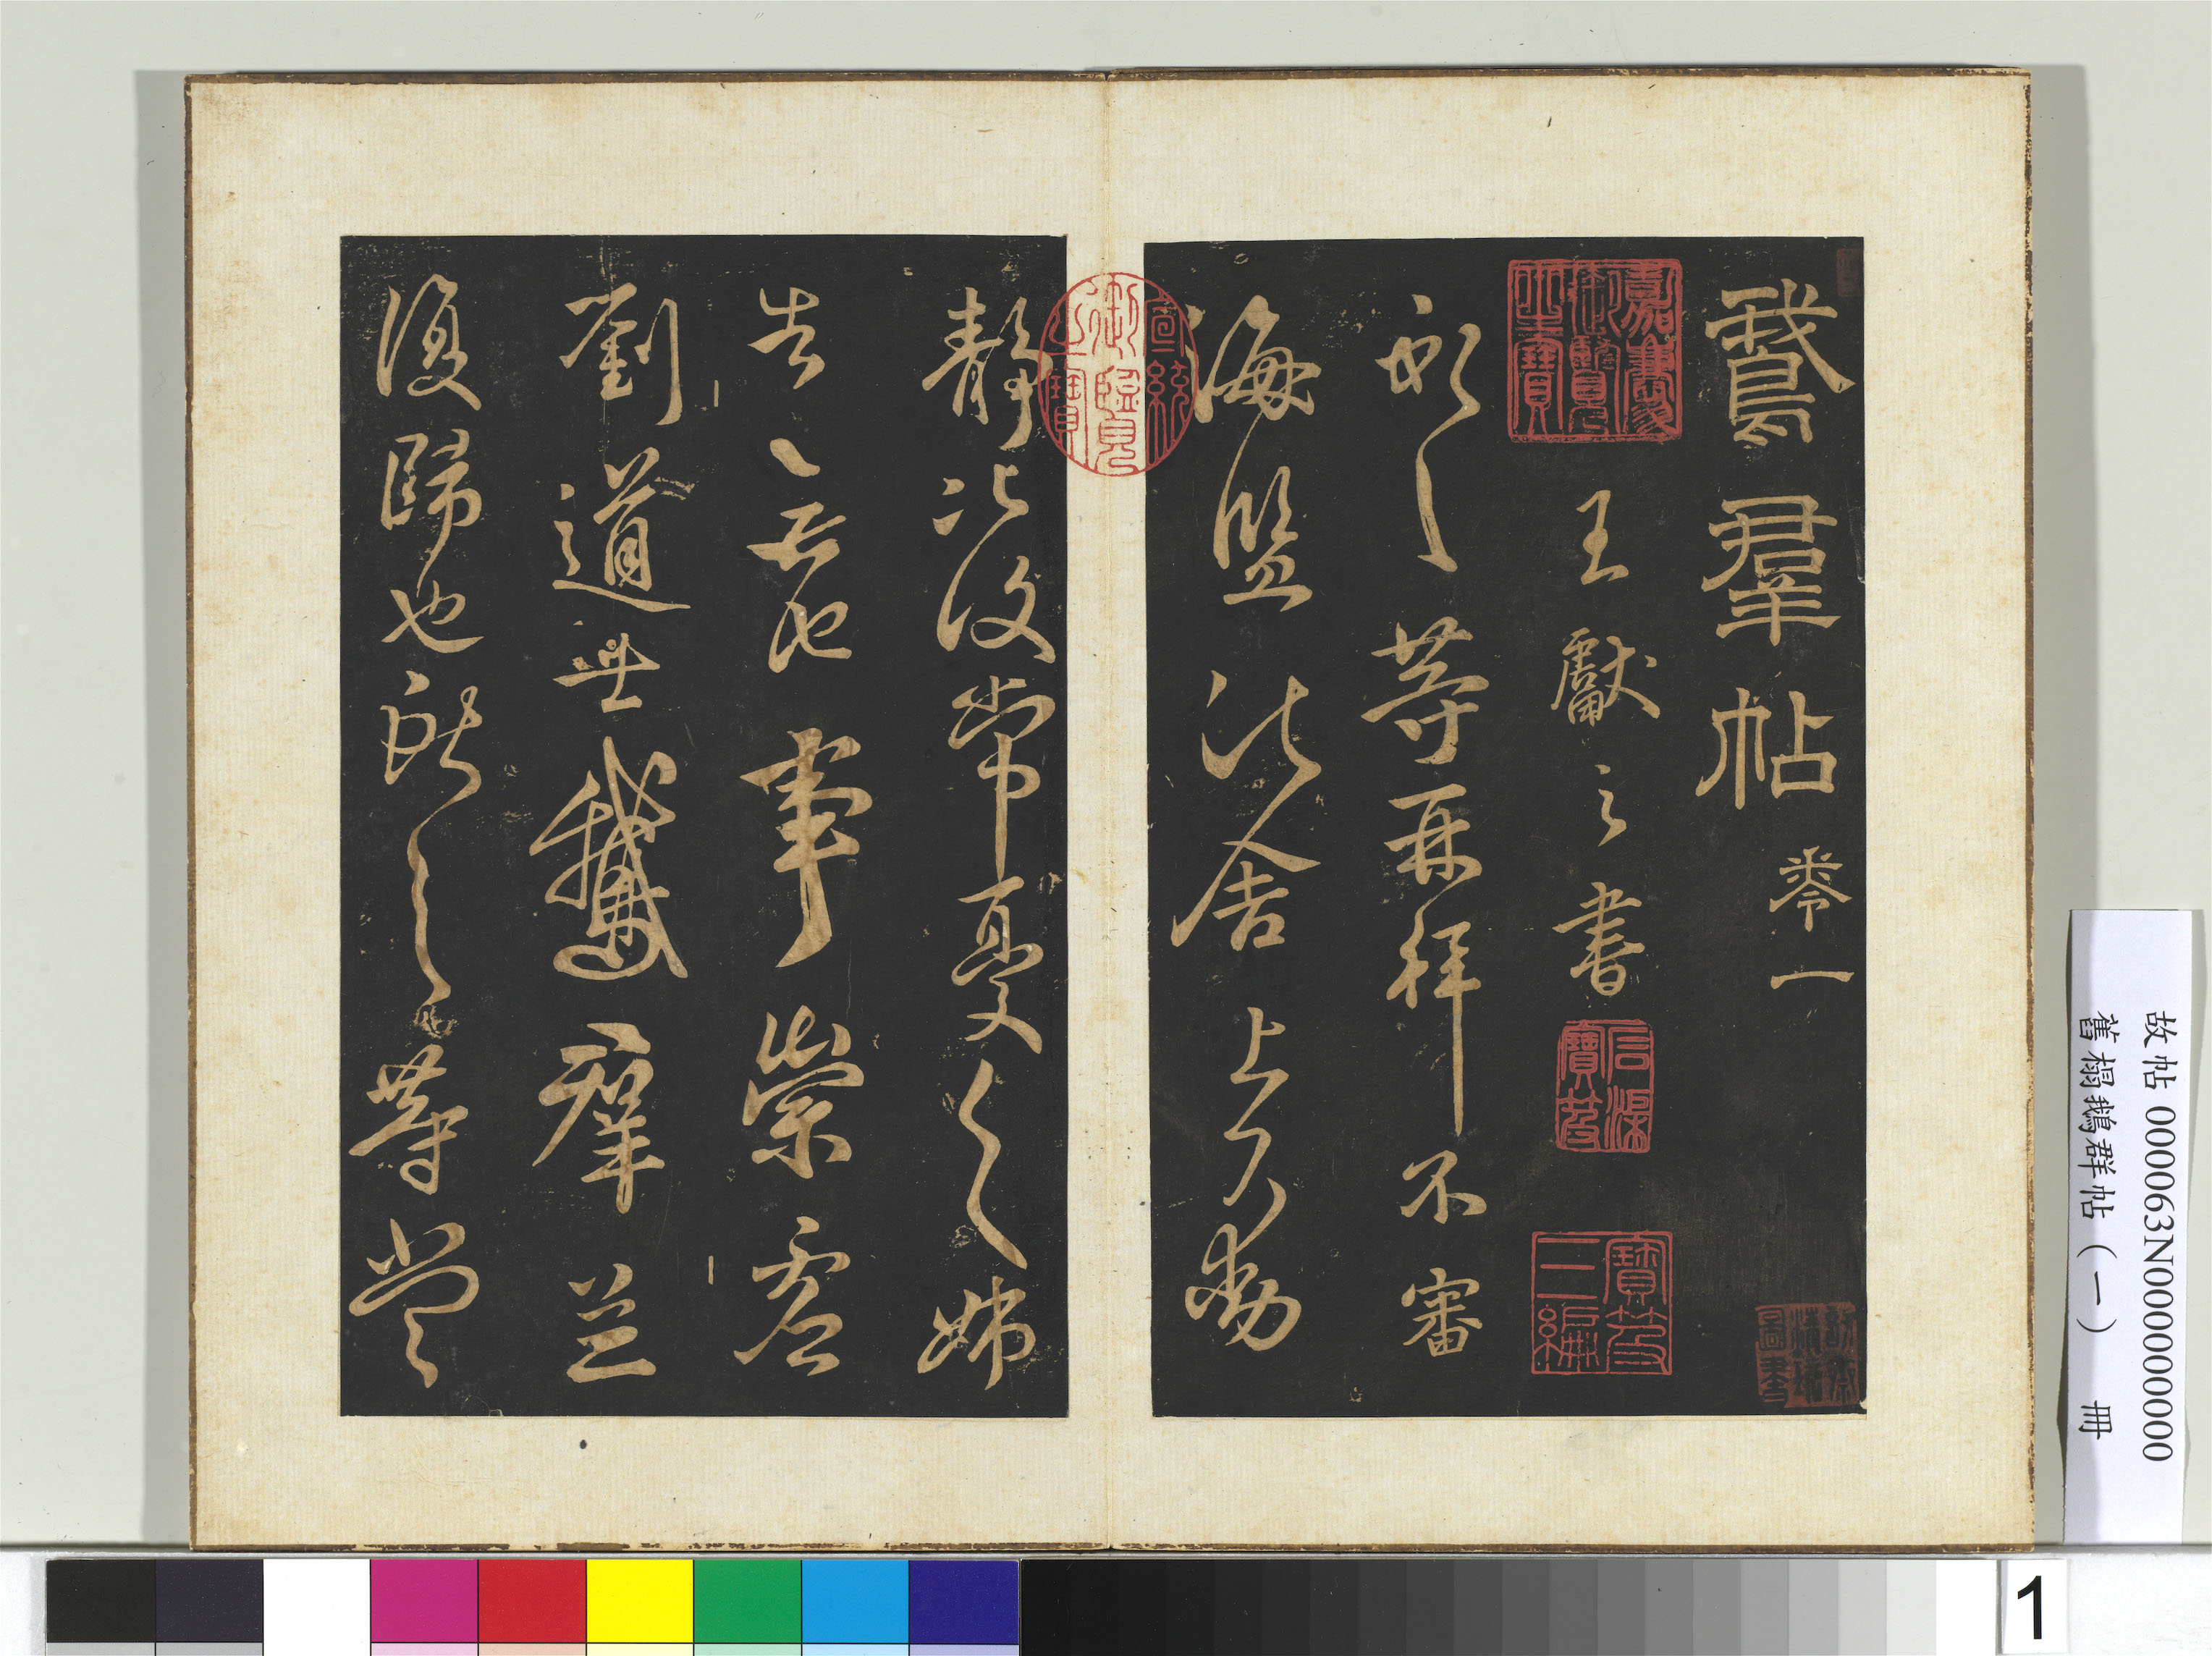 鵞羣帖 卷一
嘉慶御覽之寶
王獻之書
石渠寶笈
寶笈三編
獻之等再拜不審
海鹽諸舍上下動
宣統御覽之寶
靜比復常憂之姊
告無他事崇虛
劉道士鵞羣並
復歸也獻之等當
故帖 000063N000000000
舊榻鵝群帖（一） 冊
1